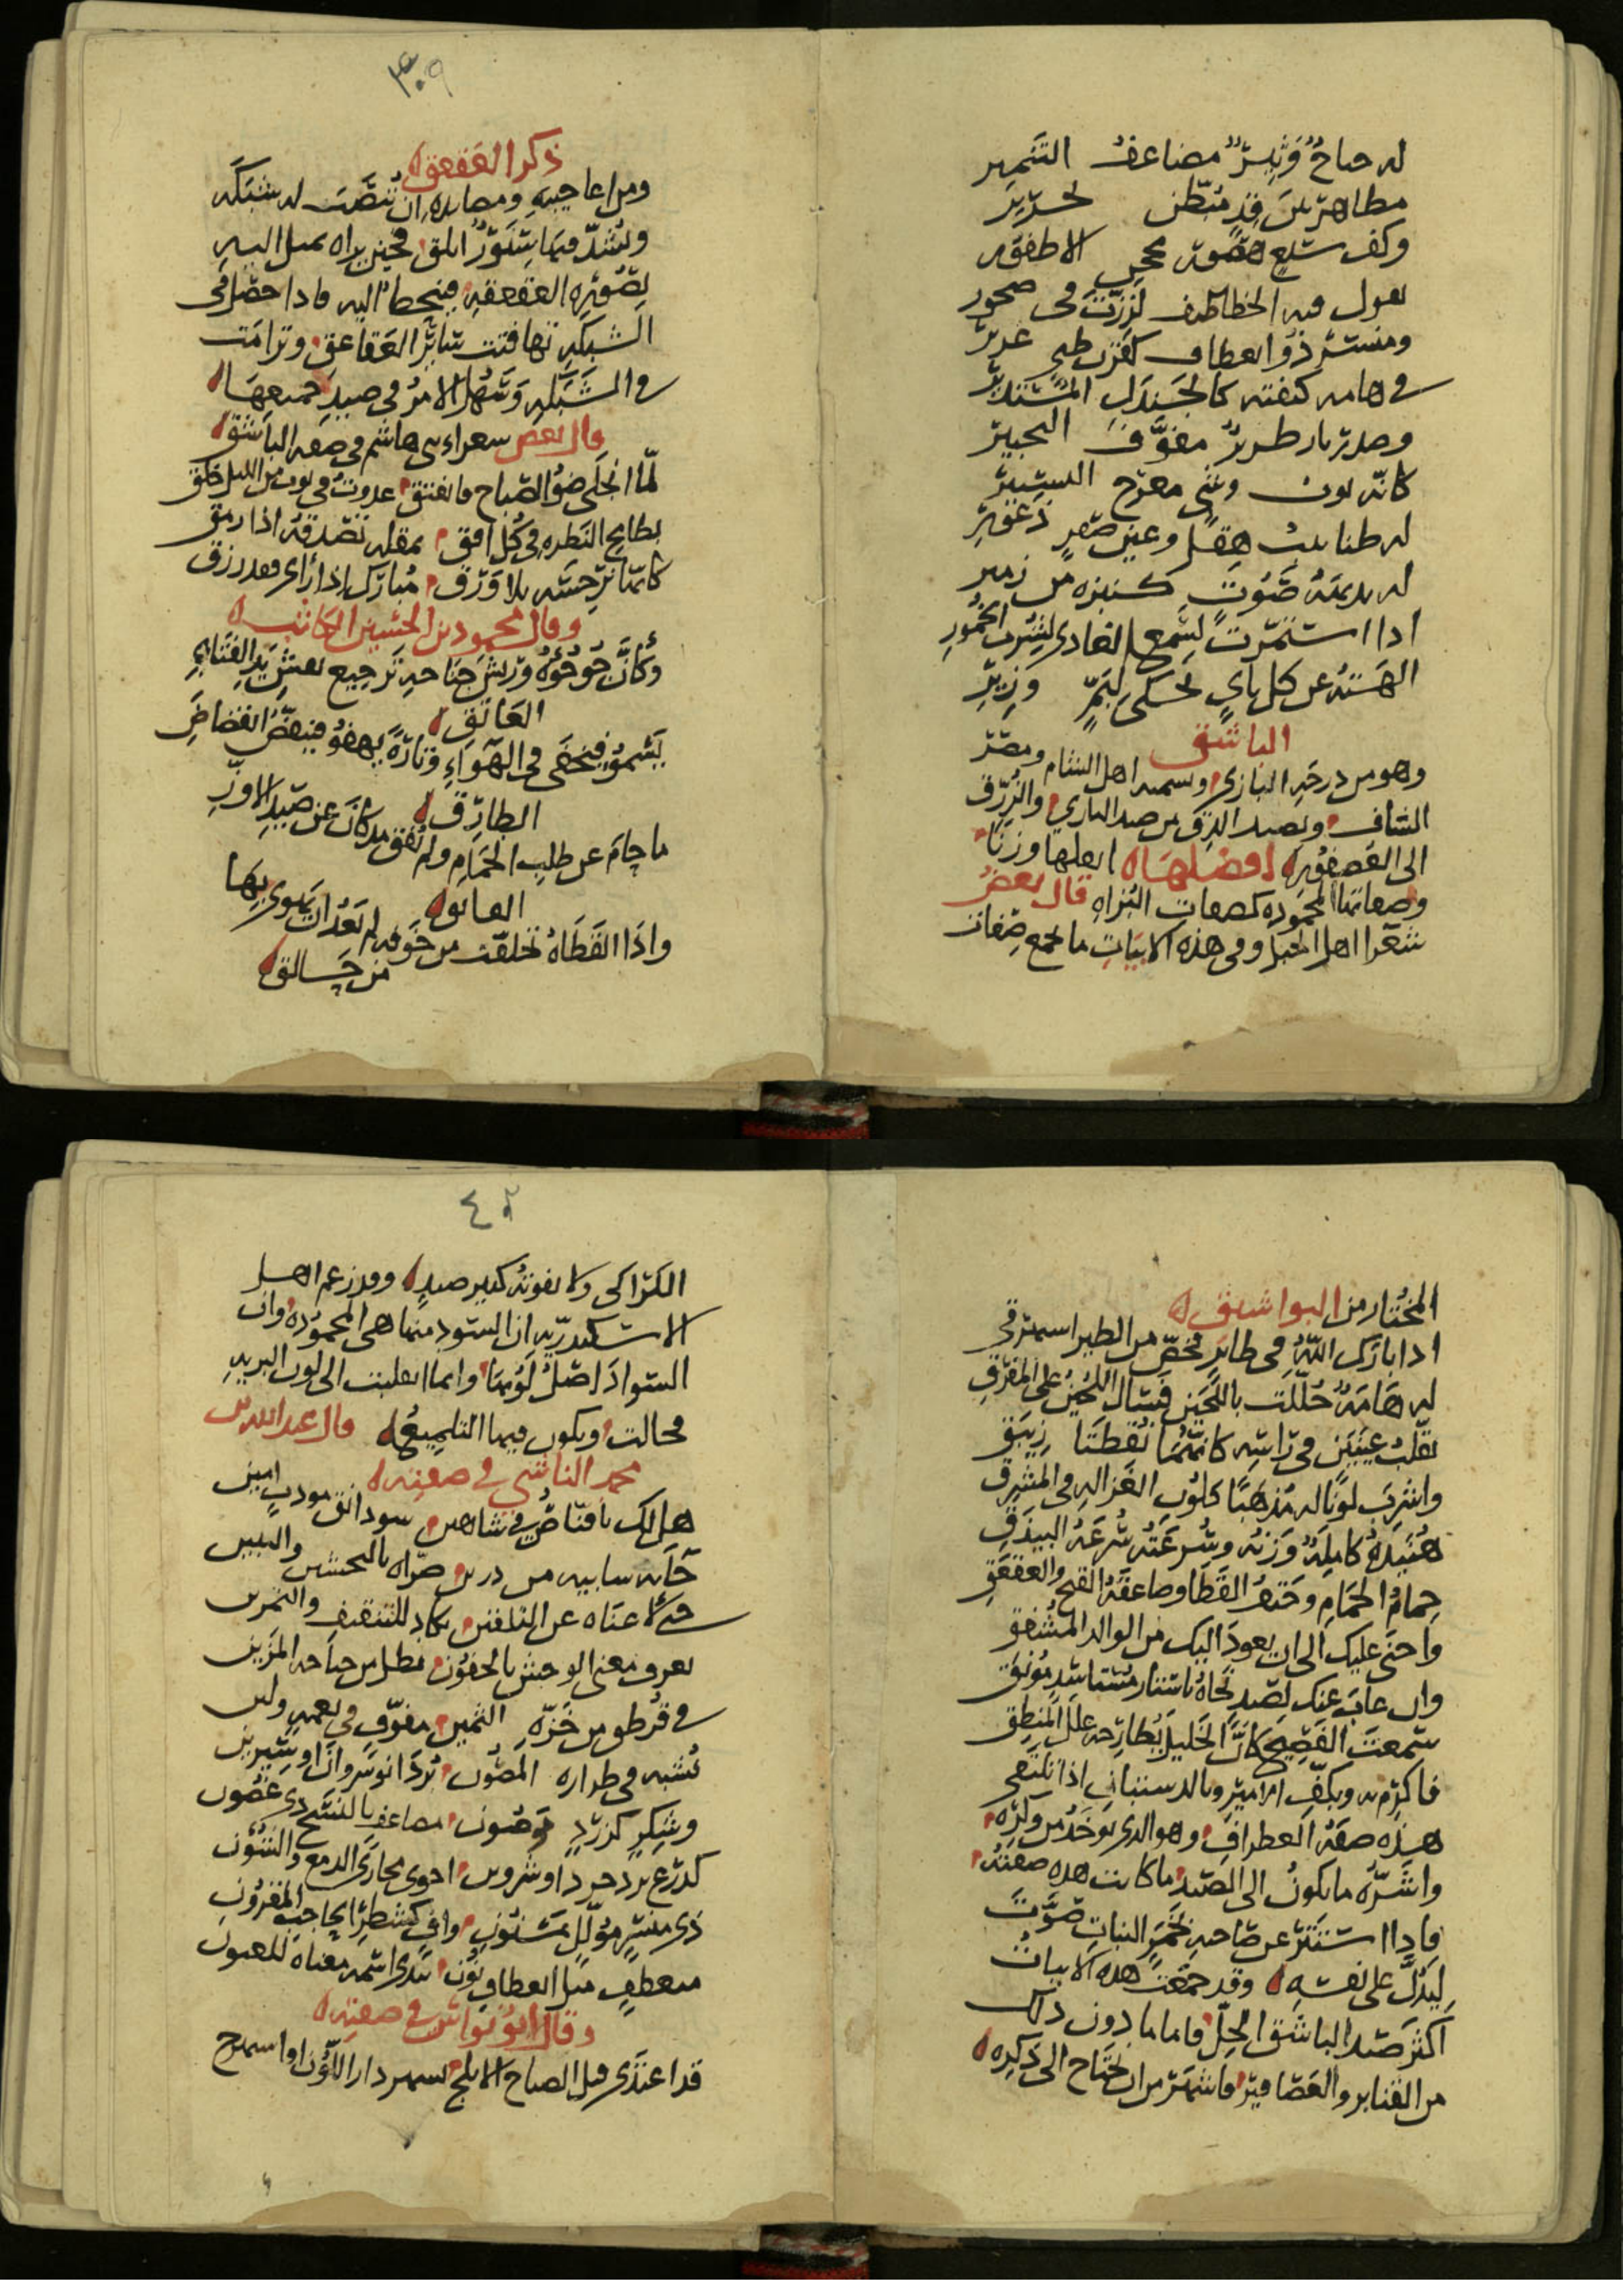 له جناح وثير مضاعف التنمير
مظاهر من قد مبطن بحرير
وكف سبع هصور محجن الاظفور
يقول فيه الخطاطيف لززت في صخور
ومنسر ذو انعطاف كقرن ظبي غرير
في هامة كنفته كالجندل المستدير
وصدر باز طرير مفوف التحبير
كانه لون وشي معرج التسيير
له طنابيب هقل وعين صقر
له صوت من زمير
اذا استنمرت لسمع الغادي لشرب الخمور
الهته عن كل ناي يحكى لبم وزير
الباشق
وهو من درجة البازي ويسميه اهل الشام ومصر
الشاف ويصيد الزرق من صيد البازي والزرق
الى العصفور افضلها اثقلها وزنا
وصفاتها المحمودة كصفات البزاه قال بعض
شعرا اهل الجبل وفي هذه الابيات ما يجمع صفات
٣٠٩
ذكر العقعق
ومن اعاجيبه ومصايده ان تنصب له شبكه
ويشد فيها سنور ابلق فحين يراه يميل اليه
بصورة العقعقه فينحط اليه فاذا حصل في
الشبكه تهافتت سائر العقاعق وترامت
في الشبكه وسهل الامر في صيد جميعها
وقال بعض شعراء بني هاشم في صفه الباشق
لما انجلى ضو الصباح فانفتق غدوت في ثوب من الليل خلق
بطامح النظره في كل افق بمقله تصدقه اذا رمق
كانها نرجسه بلا ورق مبارك اذا راى فقد رزق
وقال محمود بن الحسين الكاتب
وكان جؤجؤه وريش جناحه ترجيع نقش يد الفتاه
العاتق
يسمو فيخفى في الهواء وتارة يهفو فينقض انقضاض
الطارق
ما جام عن طلب الحمام ولم يفق مذ كان عن صيد الاوز
الفائق
واذا القطاه تخلفت من خوفه لم يعد ان يهوي بها
من حالق
المختار من البواشق
اذا بارك الله في طاير فخص من الطير اسمرقي
له هامة كللت باللجين فسال اللجين على المفرق
يقلب عينين في راسه كانهما نقطتا زيبق
واشرب لونا له مذهبا كلون الغزاله في المشرق
هنيدة كاملة وزنه وسرعته سرعة البيذق
حمام الحمام وحتف القطا وصاعقة القبج والعقعق
واحنى عليك الى ان يعود اليك من الوالد المشفق
وان غاب عنك لصيد نحاه
سمعت الفصيح كان الخليل يطارحه علل المنطق
فاكرم به وبكف الامير وبالدستبان اذا تلتقي
هذه صفة الغطراف وهو الذي يوخذ من وكره
واشره ما يكون الى الصيد ما كانت هذه صفته
فاذا استتر عن صاحبه بخمر النبات صوت
ليدل على نفسه وقد جمعت هذه الابيات
اكثر صيد الباشق الجل فاما ما دون ذلك
من القنابر والعصافير فاشهر من ان يحتاج الى ذكره
٤٢
الكراكي ولا يفوته كبير صيد وقد زعم اهل
الاسكندريه ان السود منها هي المحموده وان
السواد اصل لونها وانما انقلبت الى لون البريه
فحالت ويكون فيها التلميع قال عبد الله بن
محمد الناشي في صفته
هل لك يا قناص في شاهين سوذانق مودب امين
جا به سايبه من درين ضراه بالتحسيس والتليين
حتى لاغناه عن التلقين يكاد للتثقيف والتمرين
يعرف معنى الوحش بالجفون يظل من جناحه المزين
في قرطق من خزه الثمين مفوف في نعمه ولين
يشبه في طرازه المصون برد انوشروان او شيرين
وشكر كزرد موضون مضاعف بالنسج ذي غضون
كدرع يزدجرد او شروين احوى مجاري الدمع والشؤون
ذي منسر مؤلل مسنون واف كشطر الحاجب المقرون
منعطف مثل انعطاف نون يبدى اسمه معناه للعيون
وقال ابو نواس في صفته
قد اغتدى قبل الصباح الابلج